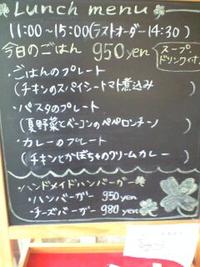 Lunch menu
11:00~15:00(ラストオーダー14:30)
今日のごはん 950yen
スープ、
ドリンク付
・ごはんのプレート
(チキンのスパイシートマト煮込み)
・パスタのプレート
(夏野菜とベーコンのペペロンチーノ)
・カレーのプレート
(チキンとかぼちゃのクリームカレー)
ハンドメイドハンバーガー
・ハンバーガー 950yen
・チーズバーガー 980yen